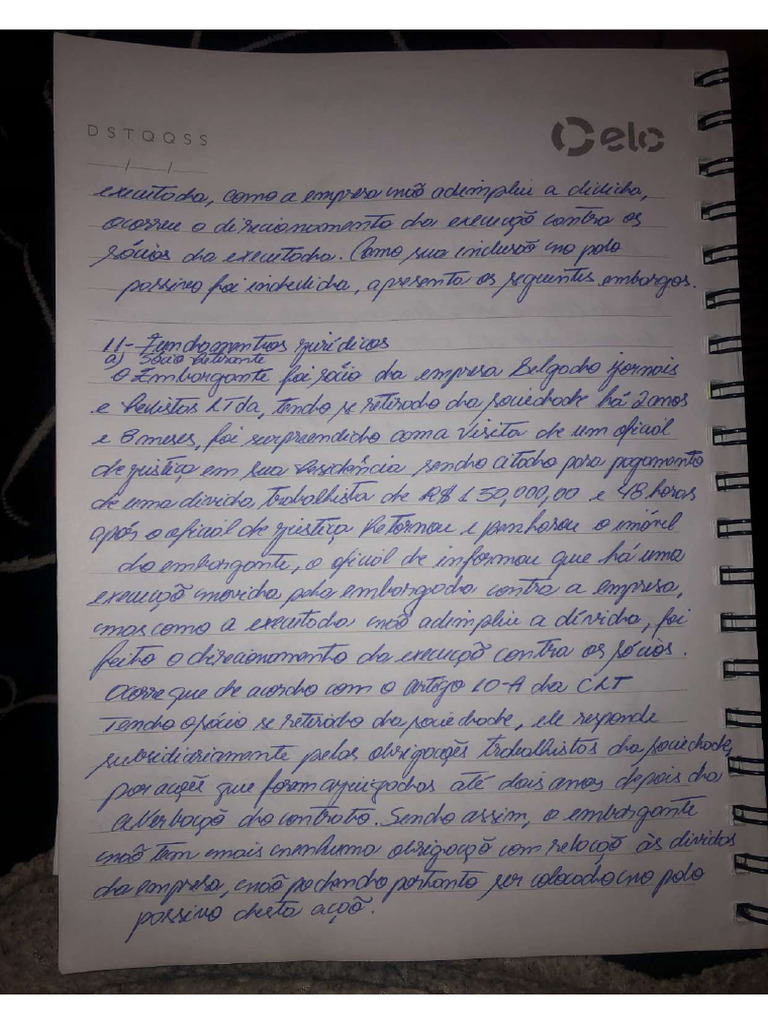 DSTQQSS
elo
__/__/__
executada, como a empresa não adimpliu a dívida,
ocorreu o direcionamento da execução contra os
sócios da executada. Como sua inclusão no polo
passivo foi indevida, apresenta os seguintes embargos.
II- Fundamentos jurídicos
a) Sócio Retirante
O Embargante foi sócio da empresa Belgado jornais
e Revistas LTda, tendo se retirado da sociedade há 2 anos
e 8 meses, foi surpreendido com a visita de um oficial
de justiça em sua residência sendo citado para pagamento
de uma dívida trabalhista de R$ 150,000,00 e 48 horas
após o oficial de justiça retornou e penhorou o imóvel
do embargante, o oficial de informou que há uma
execução movida pela embargada contra a empresa,
mas como a executada não adimpliu a dívida, foi
feito o direcionamento da execução contra os sócios.
Ocorre que de acordo com o artigo 10-A da CLT
Tendo o sócio se retirado da sociedade, ele responde
subsidiariamente pelas obrigações trabalhistas da sociedade,
por ações que foram ajuizadas até dois anos depois da
averbação do contrato. Sendo assim, o embargante
não tem mais nenhuma obrigação com relação às dívidas
da empresa, não podendo portanto ser colocado no polo
passivo desta ação.